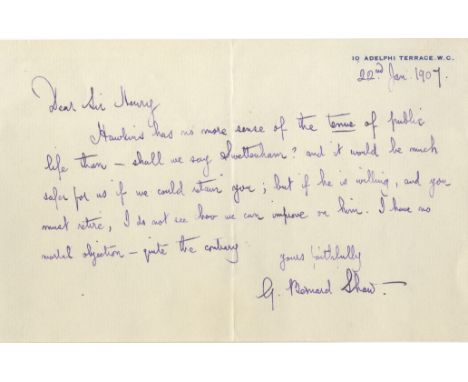 10 ADELPHI TERRACE. W.C.
22nd Jan. 1907.
Dear Sir Henry
Hawkins has no more sense of the tenue of public
life than – shall we say Swettenham? and it would be much
safer for us if we could retain you; but if he is willing, and you
must retire, I do not see how we can improve on him. I have no
mortal objection – quite the contrary
yours faithfully
G. Bernard Shaw.